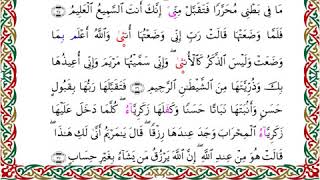 مَا فِى بَطْنِى مُحَرَّرًا فَتَقَبَّلْ مِنِّىٓ ۖ إِنَّكَ أَنتَ ٱلسَّمِيعُ ٱلْعَلِيمُ ﴿٣٥﴾
فَلَمَّا وَضَعَتْهَا قَالَتْ رَبِّ إِنِّى وَضَعْتُهَآ أُنثَىٰ وَٱللَّهُ أَعْلَمُ بِمَا
وَضَعَتْ وَلَيْسَ ٱلذَّكَرُ كَٱلْأُنثَىٰ ۖ وَإِنِّى سَمَّيْتُهَا مَرْيَمَ وَإِنِّىٓ أُعِيذُهَا
بِكَ وَذُرِّيَّتَهَا مِنَ ٱلشَّيْطَٰنِ ٱلرَّجِيمِ ﴿٣٦﴾ فَتَقَبَّلَهَا رَبُّهَا بِقَبُولٍ
حَسَنٍ وَأَنۢبَتَهَا نَبَاتًا حَسَنًا وَكَفَّلَهَا زَكَرِيَّاءُ ۖ كُلَّمَا دَخَلَ عَلَيْهَا
زَكَرِيَّاءُ ٱلْمِحْرَابَ وَجَدَ عِندَهَا رِزْقًا ۖ قَالَ يَٰمَرْيَمُ أَنَّىٰ لَكِ هَٰذَا ۖ
قَالَتْ هُوَ مِنْ عِندِ ٱللَّهِ ۖ إِنَّ ٱللَّهَ يَرْزُقُ مَن يَشَآءُ بِغَيْرِ حِسَابٍ ﴿٣٧﴾